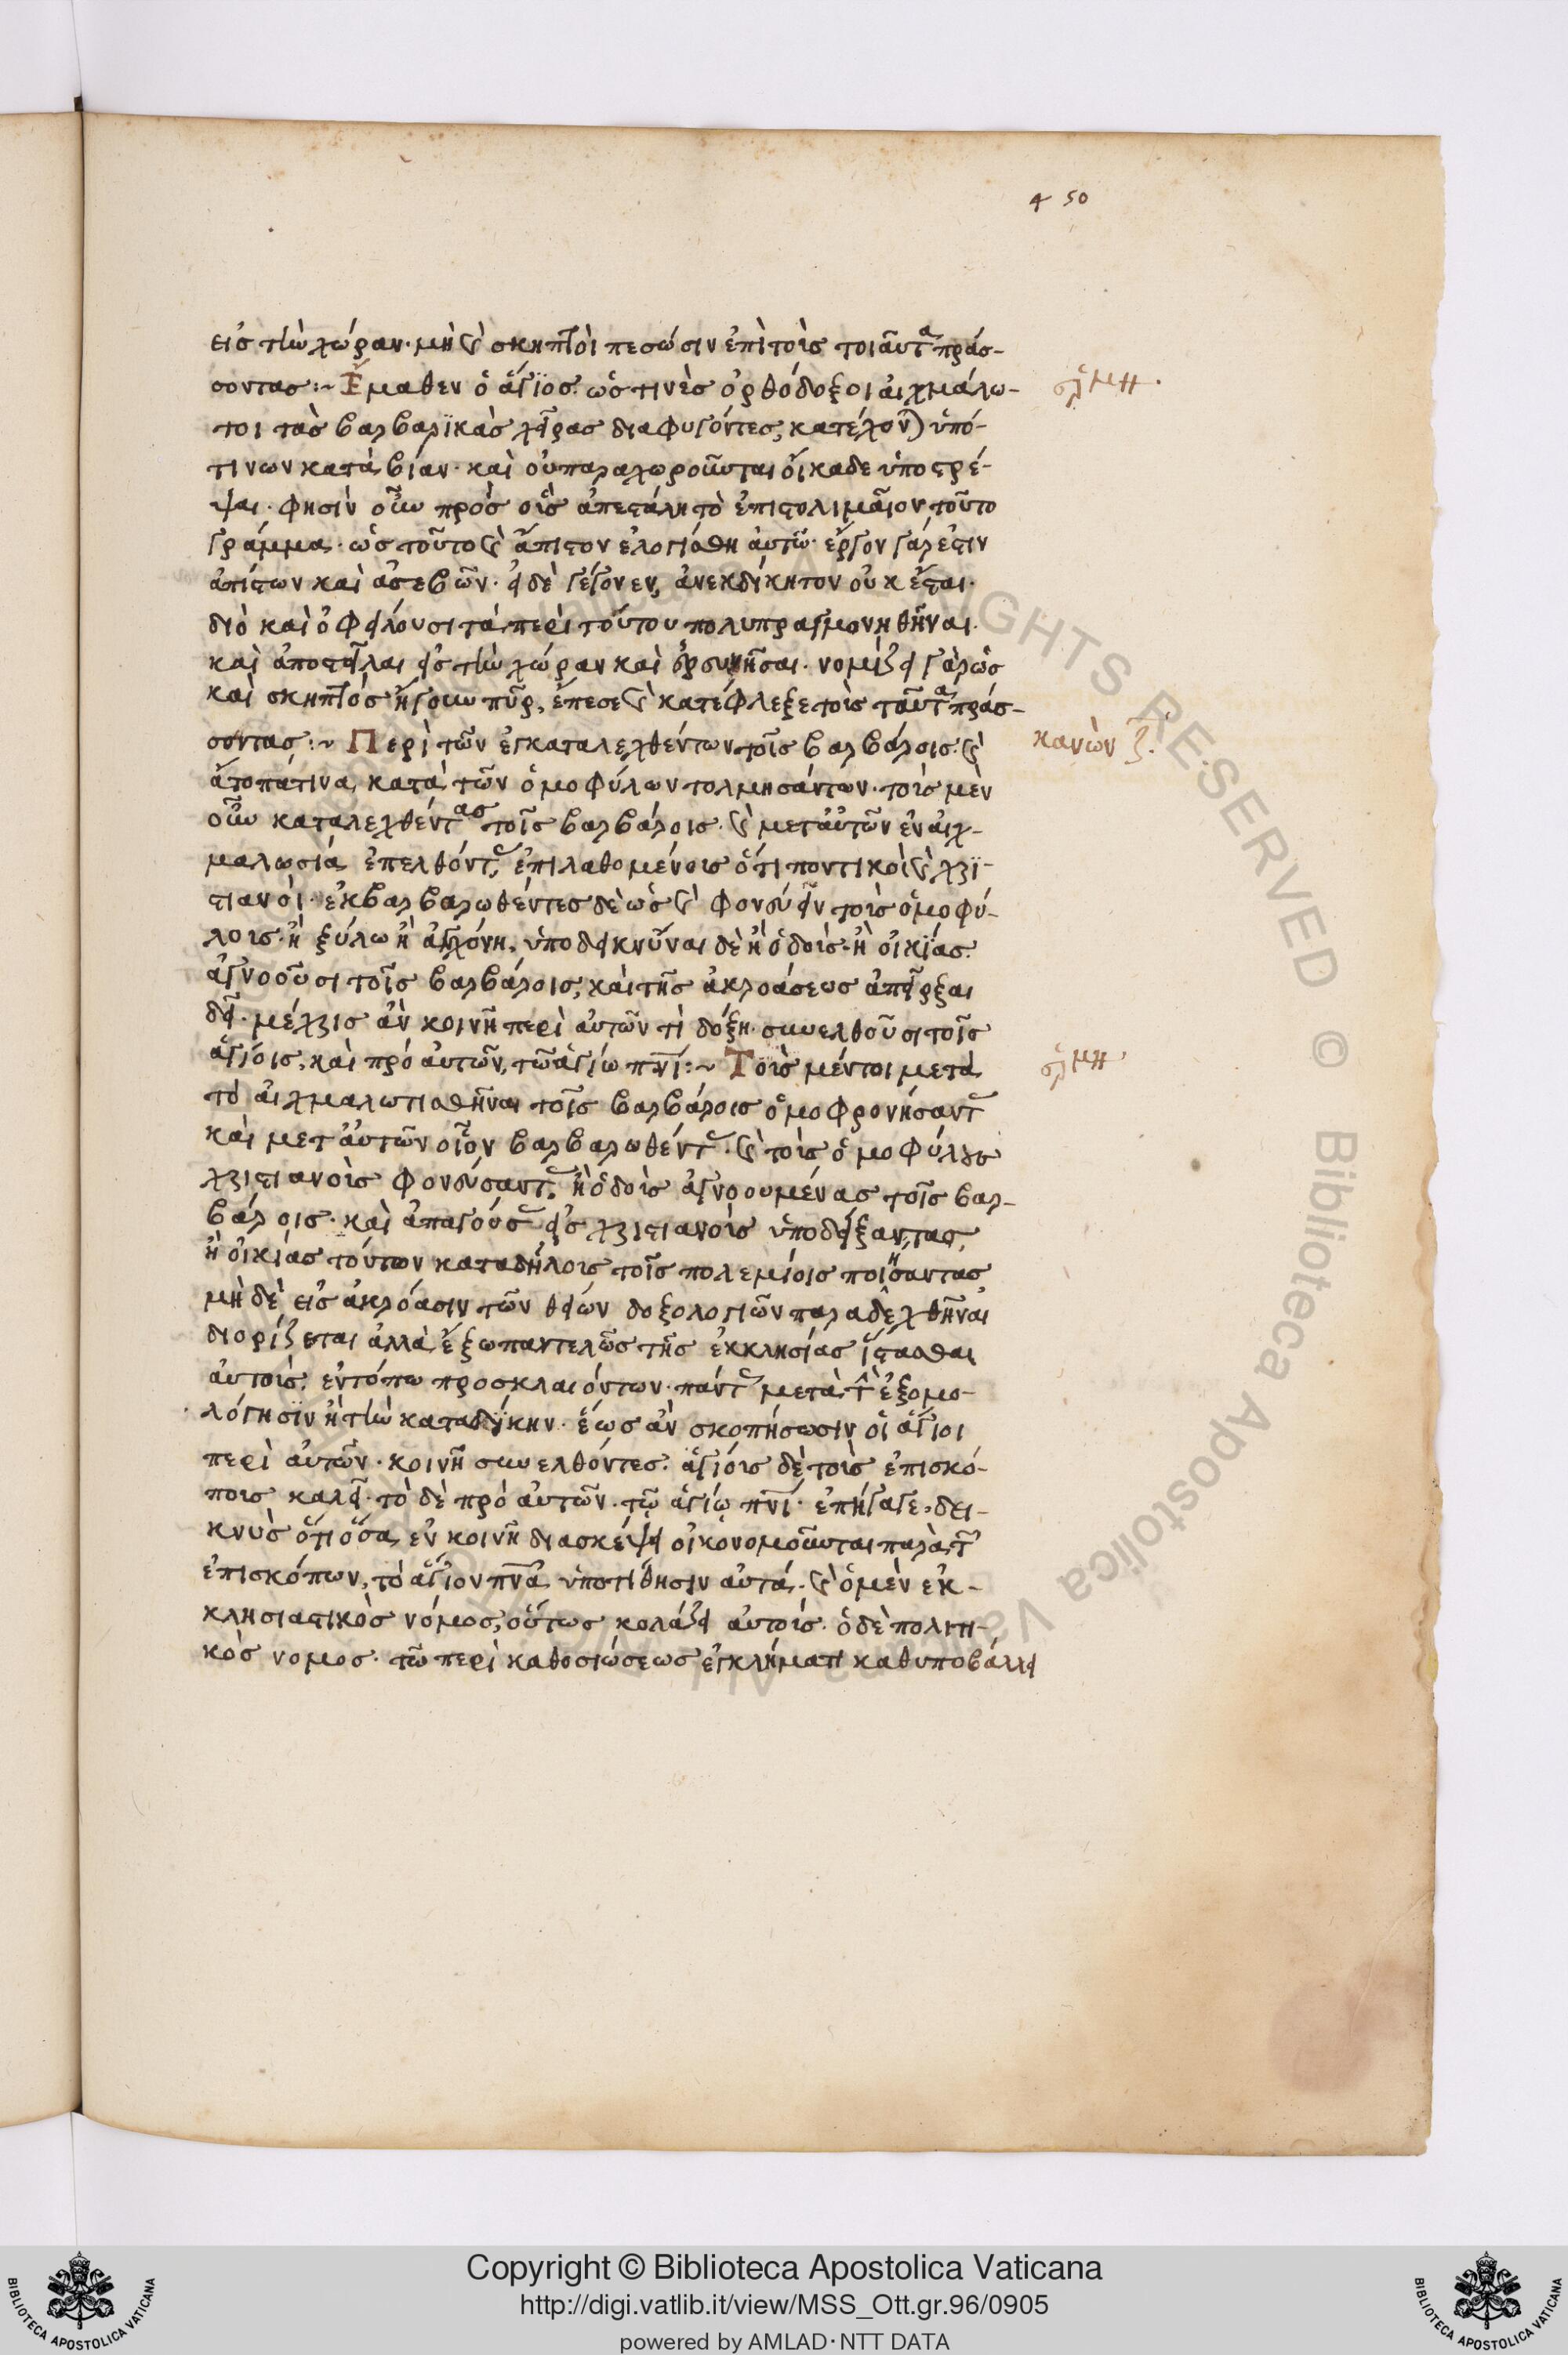 450
εἰς τὴν χώραν· μὴ καὶ σκηπτοὶ πεσῶσιν ἐπὶ τοὺς τοιαῦτα πράσ-
σοντας :~ Ἔμαθεν ὁ ἅγιος ὡς τινὲς ὀρθόδοξοι αἰχμάλω-
τοι τὰς βαρβαρϊκὰς χεῖρας διαφυγόντες, κατέχονται ὑπό
τινων κατὰ βίαν· καὶ οὐ παραχωροῦνται οἴκαδε ὑποστρέ-
ψαι· φησὶν οὖν πρὸς οὓς ἀπεστάλη τὸ ἐπιστολιμαῖον τοῦτο
γράμμα· ὡς τοῦτο καὶ ἄπιστον ἐλογίσθη αὐτῷ· ἔργον γάρ ἐστιν
ἀπίστων καὶ ἀσεβῶν· εἰ δὲ γέγονεν, ἀνεκδίκητον οὐκ ἔσται·
διὸ καὶ ὀφείλουσι τὰ περὶ τούτου πολυπραγμονηθῆναι·
καὶ ἀποστεῖλαι εἰς τὴν χώραν καὶ ἐρευνῆσαι· νομίζει γὰρ ὡς
καὶ σκηπτὸς ἤγουν πῦρ, ἔπεσε καὶ κατέφλεξε τοὺς ταῦτα πράσ-
σοντας :~ Περὶ τῶν ἐγκαταλεχθέντων τοῖς βαρβάροις· καὶ
ἄτοπά τινα κατὰ τῶν ὁμοφύλων τολμησάντων· τοὺς μὲν
οὖν καταλεχθέντας τοῖς βαρβάροις· καὶ μετ αὐτῶν ἐν αἰχ-
μαλωσία ἐπελθόντας, ἐπιλαθομένους ὅτι ποντικοὶ καὶ χρι-
στιανοὶ· ἐκβαρβαρωθέντες δὲ ὡς καὶ φονεύειν τοὺς ὁμοφύ-
λους· ἢ ξύλω ἢ ἀγχόνη, ὑποδεικνῦναι δὲ ἢ ὁδοὺς· ἢ οἰκίας
ἀγνοοῦσι τοῖς βαρβάροις, καὶ τῆς ἀκροάσεως ἀπεῖρξαι
δεῖ· μέχρις ἂν κοινῆ περὶ αὐτῶν τὶ δόξη συνελθοῦσι τοῖς
ἁγίοις, καὶ πρὸ αὐτῶν, τῶ ἁγίω πνι :~ Τοὺς μέντοι μετὰ
τὸ αἰχμαλωτισθῆναι τοῖς βαρβάροις ὁμοφρονήσαντας
καὶ μετ αὐτῶν οἷον βαρβαρωθέντας· καὶ τοὺς ὁμοφύλους
χριστιανοὺς φονεύσαντας, ἢ ὁδοὺς ἀγνοουμένας τοῖς βαρ-
βάροις· καὶ ἀπαγούσας εἰς χριστιανοὺς ὑποδείξαντας,
ἢ οἰκίας τούτων καταδήλους τοῖς πολεμίοις ποιήσαντας
μὴ δὲ εἰς ἀκρόασιν τῶν θείων δοξολογιῶν παραδεχθῆναι
διορίζεται ἀλλὰ ἔξω παντελῶς τῆς ἐκκλησίας ἵστασθαι
αὐτοὺς· ἐν τόπω προσκλαιόντων πάντως μετὰ τὴν ἐξομο-
λόγησϊν ἢ τὴν καταδίκην· ἕως ἂν σκοπήσωσιν οἱ ἅγιοι
περὶ αὐτῶν· κοινῆ συνελθόντες· ἁγίους δὲ τοὺς ἐπισκό-
πους καλεῖ· τὸ δὲ πρὸ αὐτῶν· τῷ ἁγίῳ πνι· ἐπήγαγε, δει-
κνὺς ὅτι ὅσα ἐν κοινῆ διασκέψει οἰκονομοῦνται παρὰ τῶν
ἐπισκόπων, τὸ ἅγιον πνα ὑποτίθησιν αὐτά· καὶ ὁ μὲν ἐκ-
κλησιαστικὸς νόμος, οὕτως κολάζει αὐτούς· ὁ δὲ πολιτι-
κὸς νομος· τῶ περὶ καθοσιώσεως ἐγκλήματι καθυποβάλλει
κανὼν ζ.
Copyright © Biblioteca Apostolica Vaticana
http://digi.vatlib.it/view/MSS_Ott.gr.96/0905
powered by AMLAD·NTT DATA
BIBLIOTECA APOSTOLICA VATICANA
BIBLIOTECA APOSTOLICA VATICANA